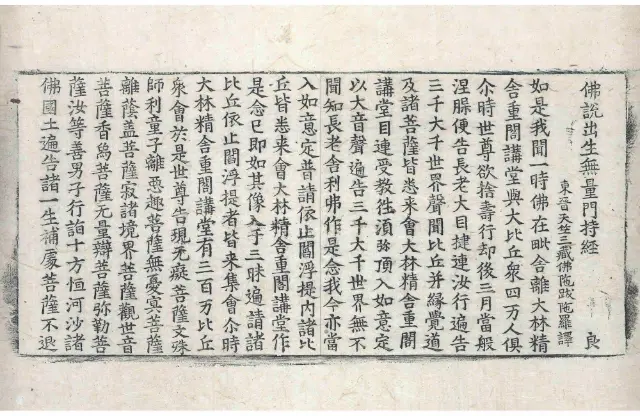 佛說出生無量門持經 良
東晉天竺三藏佛陁跋陁羅譯
如是我聞一時佛在毗舎離大林精
舎重閣講堂與大比丘衆四万人俱
尒時世尊欲捨壽行却後三月當般
涅槃便告長老大目揵連汝行遍告
三千大千世界聲聞比丘并緣覺道
及諸菩薩皆悉来會大林精舎重閣
講堂目連受教徃湏弥頂入如意定
以大音聲遍告三千大千世界無不
聞知長老舎利弗作是念我今亦當
入如意定普請依止閻浮提内諸比
丘皆悉来會大林精舎重閣講堂作
是念已即如其像入乎三昧遍請諸
比丘依止閻浮提者皆来集會尒時
大林精舎重閣講堂有三百万比丘
衆會於是世尊告現无礙菩薩文殊
師利童子離惡趣菩薩無憂㝠菩薩
離蔭盖菩薩寂諸境界菩薩觀世音
菩薩香象菩薩无量辯菩薩弥勒菩
薩汝等善男子行詣十方恒河沙諸
佛國土遍告諸一生補處菩薩不退